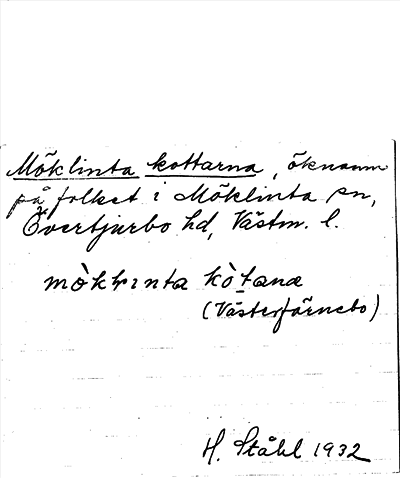 Möklinta kottarna, öknamn
på folket i Möklinta sn,
Övertjurbo hd, Västm. l.
mòklınta kò̱tana
(Västerfärnebo)
H. Ståhl 1932